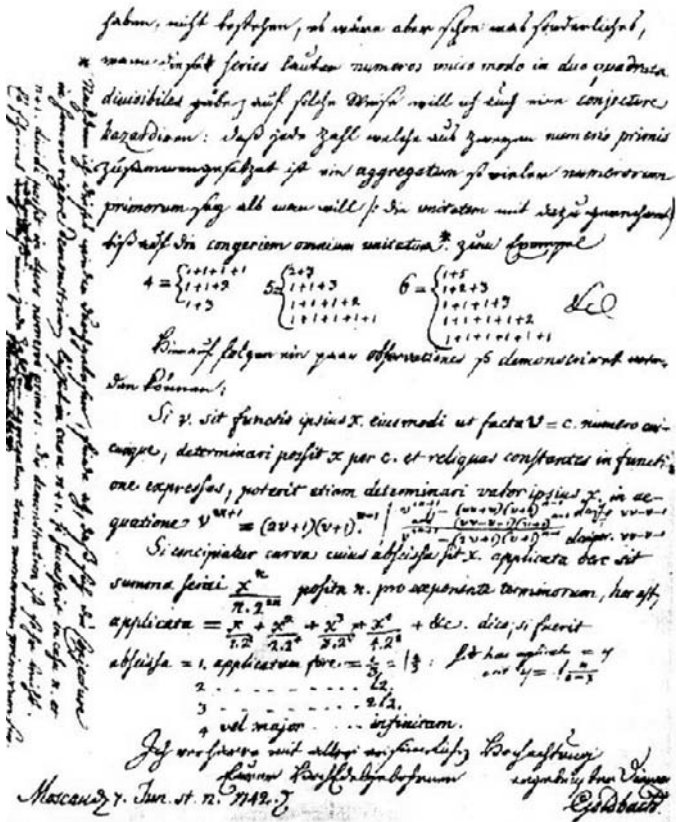 haben, nicht bestehen, es wäre aber schon was sonderliches,
wann eine series lauter numeros unico modo in duo quadrata
divisibiles gäbe; auf solche Weise will ich auch eine conjecture
hazardiren: daß jede Zahl welche aus zweyen numeris primis
zusammengesetzet ist ein aggregatum so vieler numerorum
primorum sey als man will (: die unitatem mit dazu gerechnet)
biß auf die congeriem omnium unitatum * zum Exempel
4 = { 1+1+1+1 5 = { 2+3 6 = { 1+5
1+1+2 1+1+3 1+2+3
1+3 1+1+1+2 1+1+1+3
1+1+1+1+1 1+1+1+1+2
1+1+1+1+1+1 &c
Hierauf folgen ein paar observationes so demonstriret wer-
den können:
Si v. sit functio ipsius x. eiusmodi ut facta v = c. numero cui-
cunque, determinari possit x per c. et reliquas constantes in functi-
one expressas, poterit etiam determinari valor ipsius x. in ae-
quatione v^{2n+1} = (2v+1)(v+1)^{n-1}
Si concipiatur curva cuius abscissa sit x. applicata vero sit
summa seriei x^n/n.2^{2n} posita n. pro exponente terminorum, hoc est,
applicata = x/1.2^2 + x^2/2.2^4 + x^3/3.2^6 + x^4/4.2^8 + &c. dico, si fuerit
abscissa = 1. applicatam fore = l 4/3
2 . . . . . . . . . . l2.
3 . . . . . . . . . . 2l2.
4 vel major . . . infinitam.
Ich verharre mit aller ersinnlichen Hochachtung
Eurer Hochedelgebohrnen ergebenster Diener
Moscau d. 7. Jun. st. n. 1742. Goldbach.
* Nachdem ich dieses wieder durchgelesen, finde ich, daß sich die conjecture
in summo rigore demonstriren lässet in casu n+1. si successerit in casu n. et
n+1. dividi possit in duos numeros primos. Die demonstration ist sehr leicht.
Es scheinet wenigstens, daß eine jede Zahl die größer ist als 2 ein aggregatum trium numerorum primorum sey.